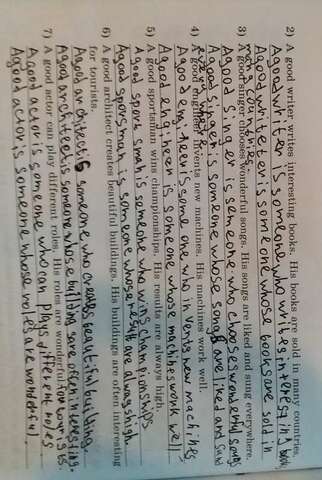 2) A good writer writes interesting books. His books are sold in many countries.
A good writer is someone who writes interesting books
A good writer is someone whose books are sold in
many countries
3) A good singer chooses wonderful songs. His songs are liked and sung everywhere.
A good singer is someone who chooses wonderful songs
A good singer is someone whose songs are liked and sung
everywhere
4) A good engineer invents new machines. His machines work well.
A good engineer is someone who invents new machines
A good engineer is someone whose machines work well
5) A good sportsman wins championships. His results are always high.
A good sportsman is someone who wins championships
A good sportsman is someone whose result are always high
6) A good architect creates beautiful buildings. His buildings are often interesting
for tourists.
A good architect is someone who creates beautiful building.
A good architect is someone whose building are often interesting
for tourists.
7) A good actor can play different roles. His roles are wonderful.
A good actor is someone who can plays different roles
A good actor is someone whose roles are wonderful,